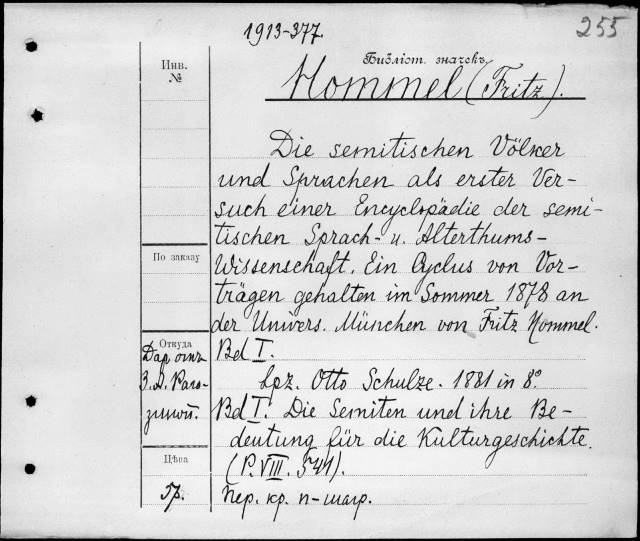 1913-377.
255
Инв.
№
Библіот. значекъ
Hommel (Fritz).
Die semitischen Völker
und Sprachen als erster Ver-
such einer Encyclopädie der semi-
tischen Sprach- u. Alterthums-
По заказу
Wissenschaft. Ein Cyclus von Vor-
trägen gehalten im Sommer 1878 an
der Univers. München von Fritz Hommel.
Откуда
Bd I.
Даръ отъ
З. А. Раго-
зиной.
Lpz. Otto Schulze. 1881 in 8°
Bd I. Die Semiten und ihre Be-
deutung für die Kulturgeschichte.
Цѣна
(P. VIII. 541).
5р.
Пер. кр. п-шагр.